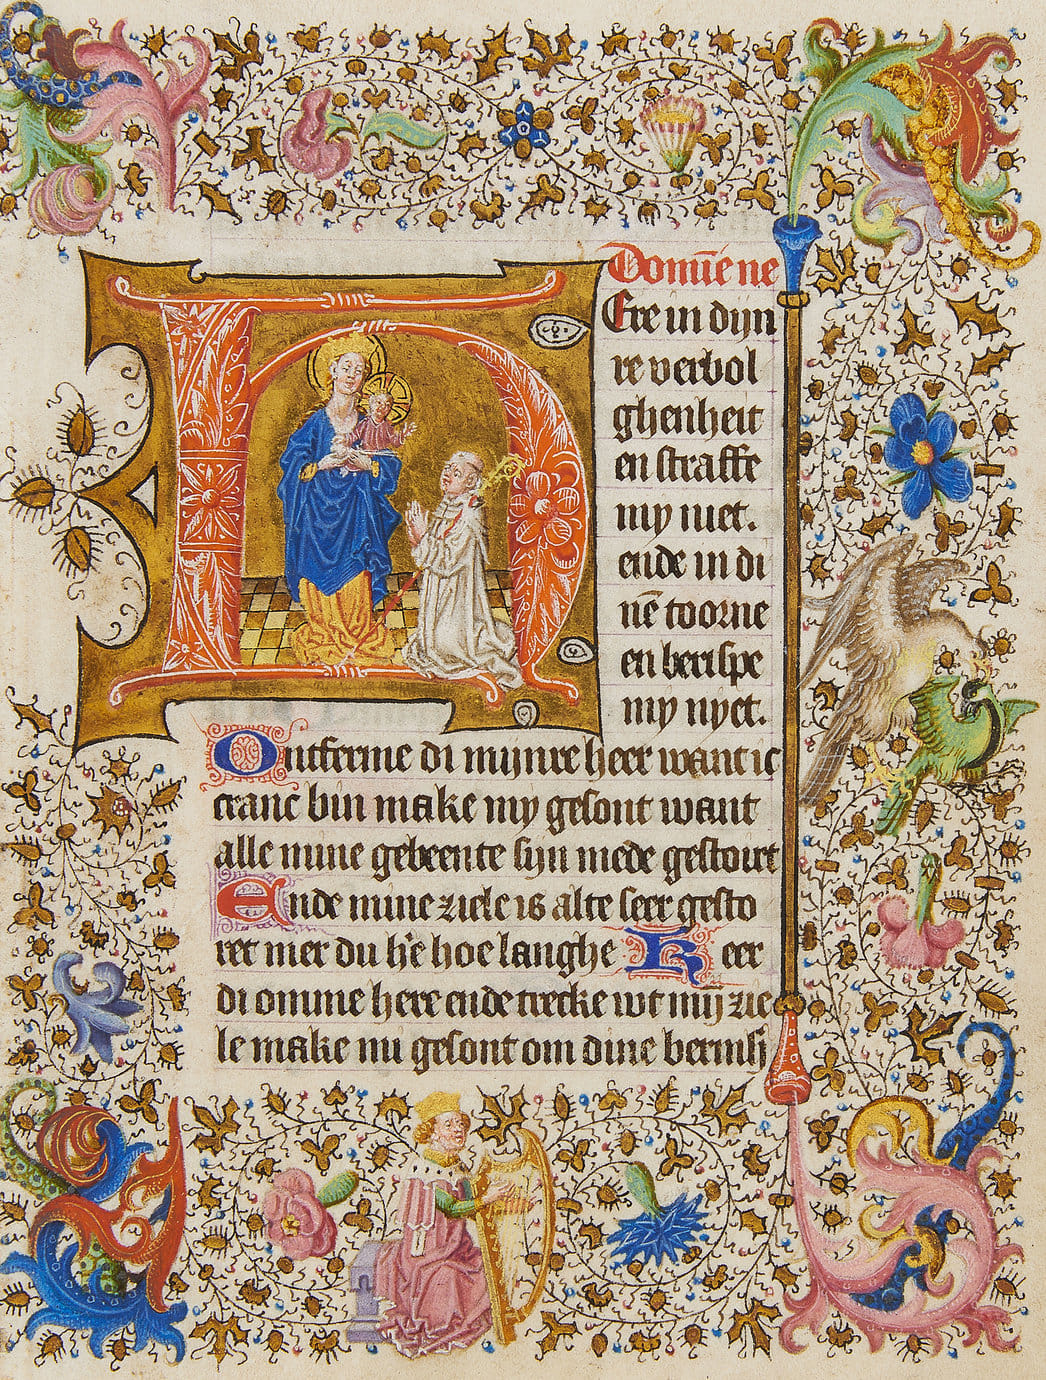 Domĩe ne
HEre in dijn
re verbol
ghenheit
en straffe
my niet.
ende in di
nē toorne
en berispe
my nyet.
Ontferme di mijnre heer want ic
cranc bin make my gesont want
alle mine gebeente sijn mede gestoirt
Ende mine ziele is alte seer gesto
ret mer du hēe hoe langhe Keer
di omme here ende trecke wt mijn zie
le make nu gesont om dine